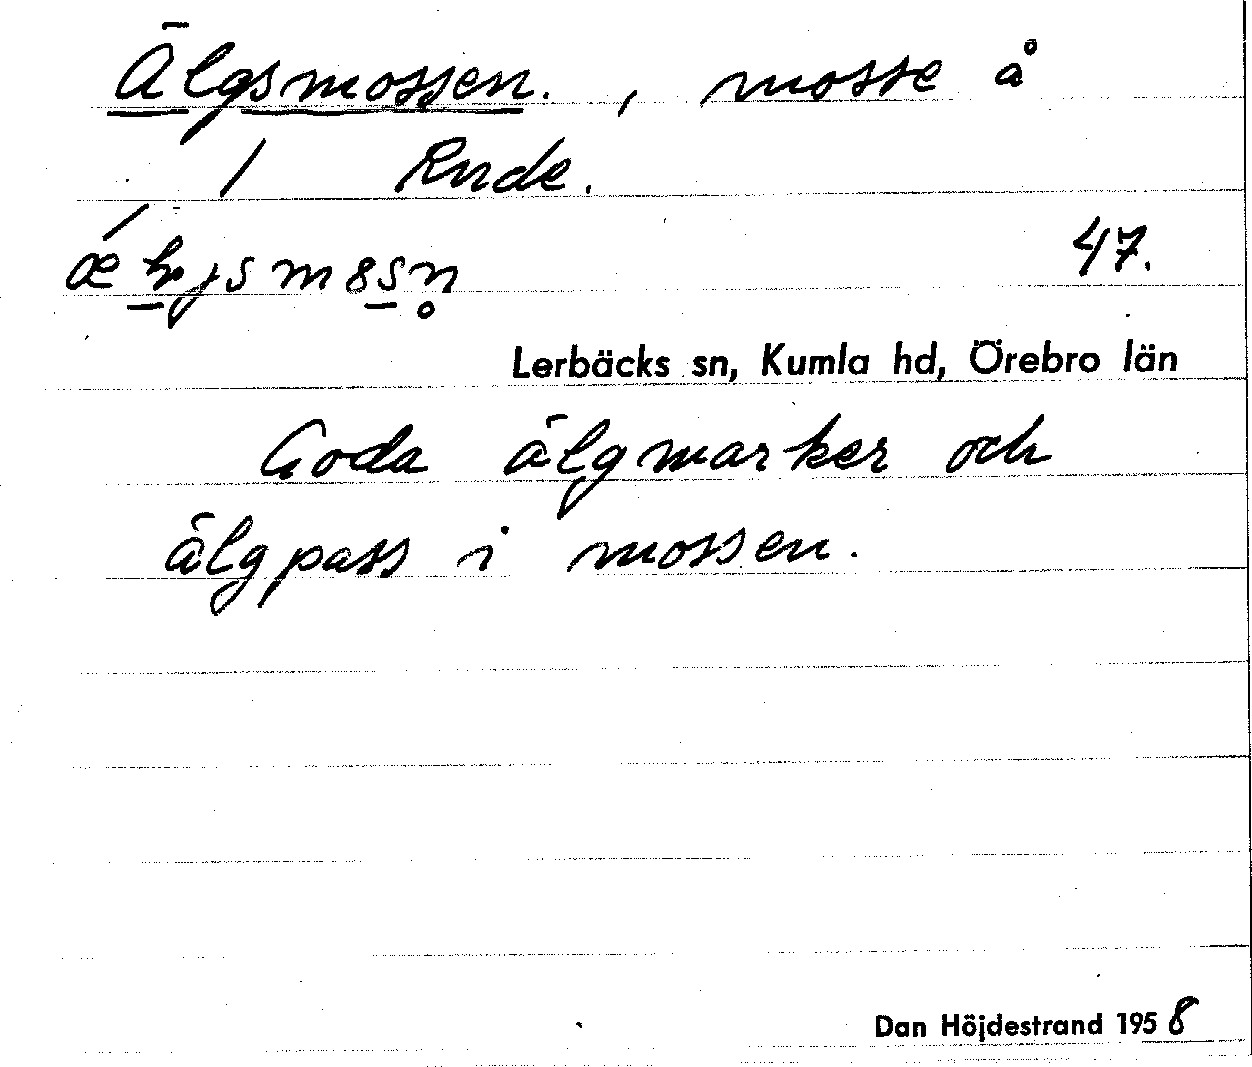 Älgsmossen. , mosse å
/ Rude.
47.
Lerbäcks sn, Kumla hd, Örebro län
Goda älgmarker och
älgpass i mossen.
Dan Höjdestrand 1958